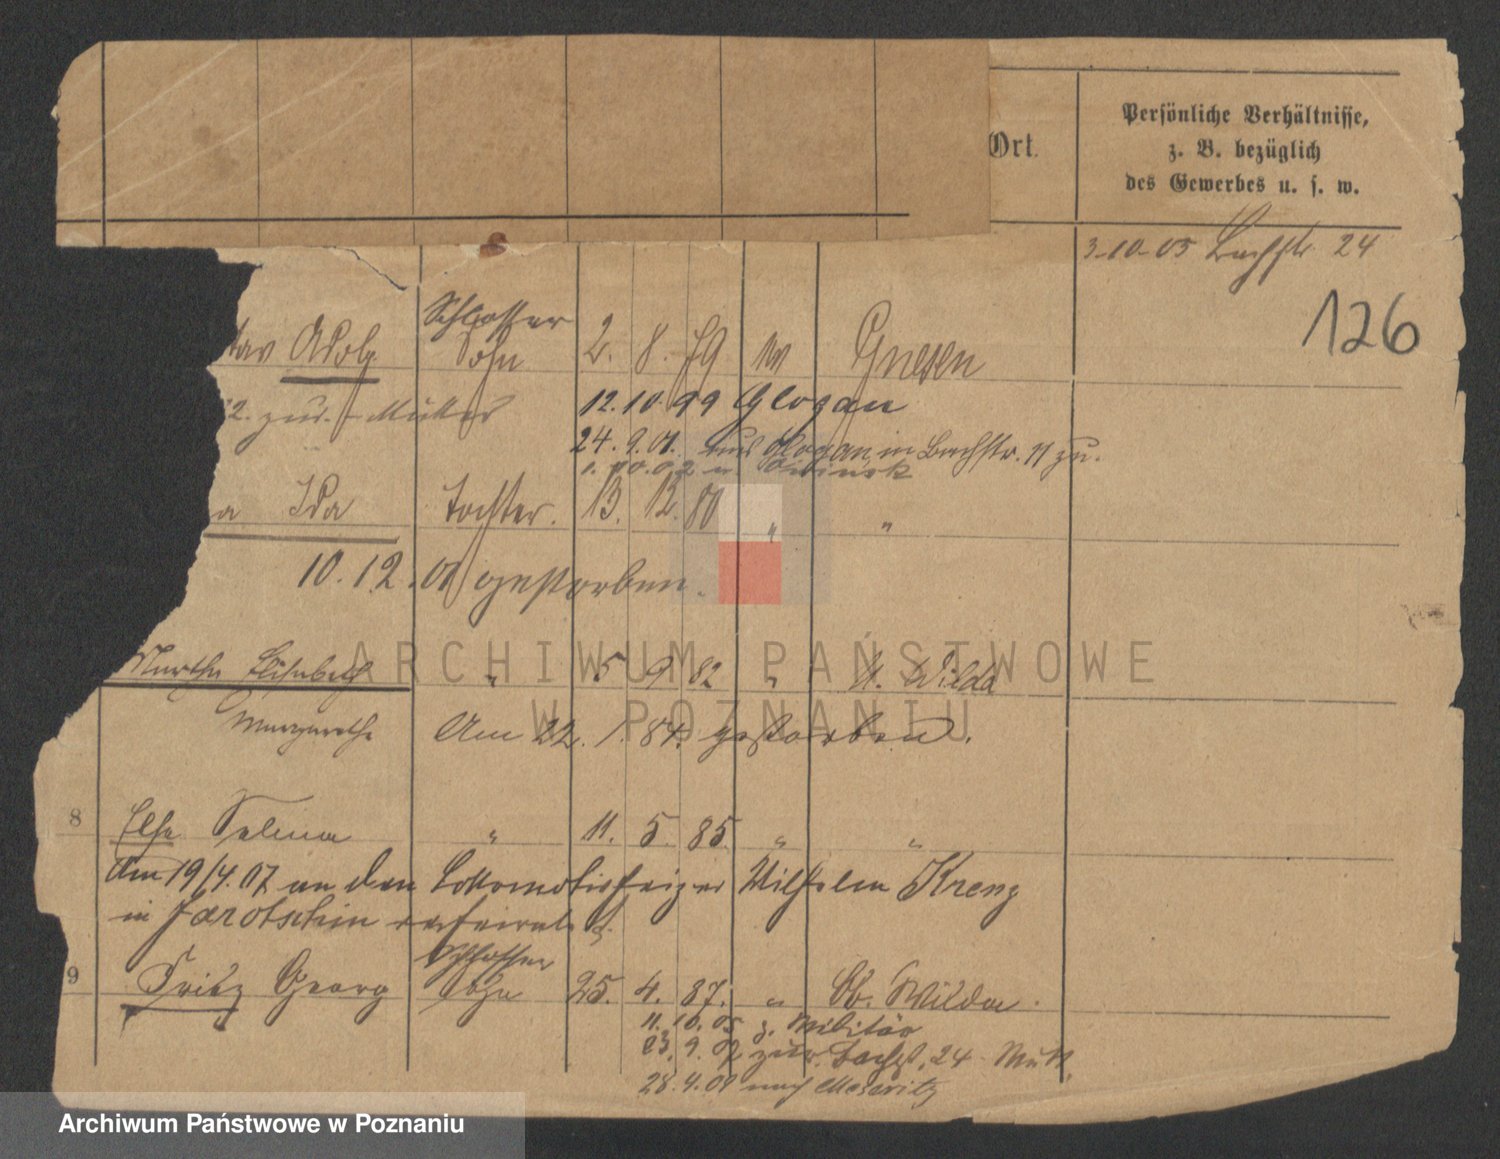 Ort.
Persönliche Verhältnisse,
z. B. bezüglich
des Gewerbes u. s. w.
3-10-05 Bachstr. 24
126
Schlosser
tav Adolf Sohn 2. 8. 79 Gnesen
zur. Mutter 12.10.99 Glogau
24.9.01. aus Glogau in Bachstr. 11 zu.
1.10.02
a Ida Tochter. 13. 12. 80 " "
10.12.01 gestorben.
Martha Elisabeth " 5 9 82 " U. Wilda
Margarethe Am 22. 1. 84. gestorben.
8 Else Selma " 11. 5. 85. " "
Am 19/4.07 an den Lokomotivheizer Wilhelm Krenz
in Jarotschin verheirat.
Schlosser
9 Fritz Georg Sohn 25. 4. 87. " Ob. Wilda.
11.10.05 z. Militär
23.9.07 zur. Bachst. 24 Mutt.
28.4.09 nach Meseritz
ARCHIWUM PAŃSTWOWE
W POZNANIU
Archiwum Państwowe w Poznaniu